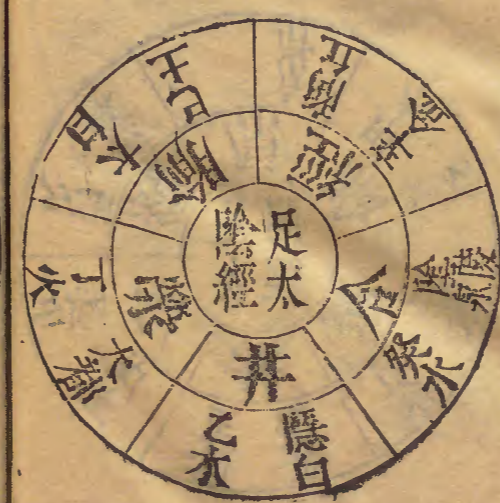 足太
陰經
井
隱白
乙木
滎
大都
丁火
腧
太白
己土
經
商丘
辛金
合
陰陵泉
癸水